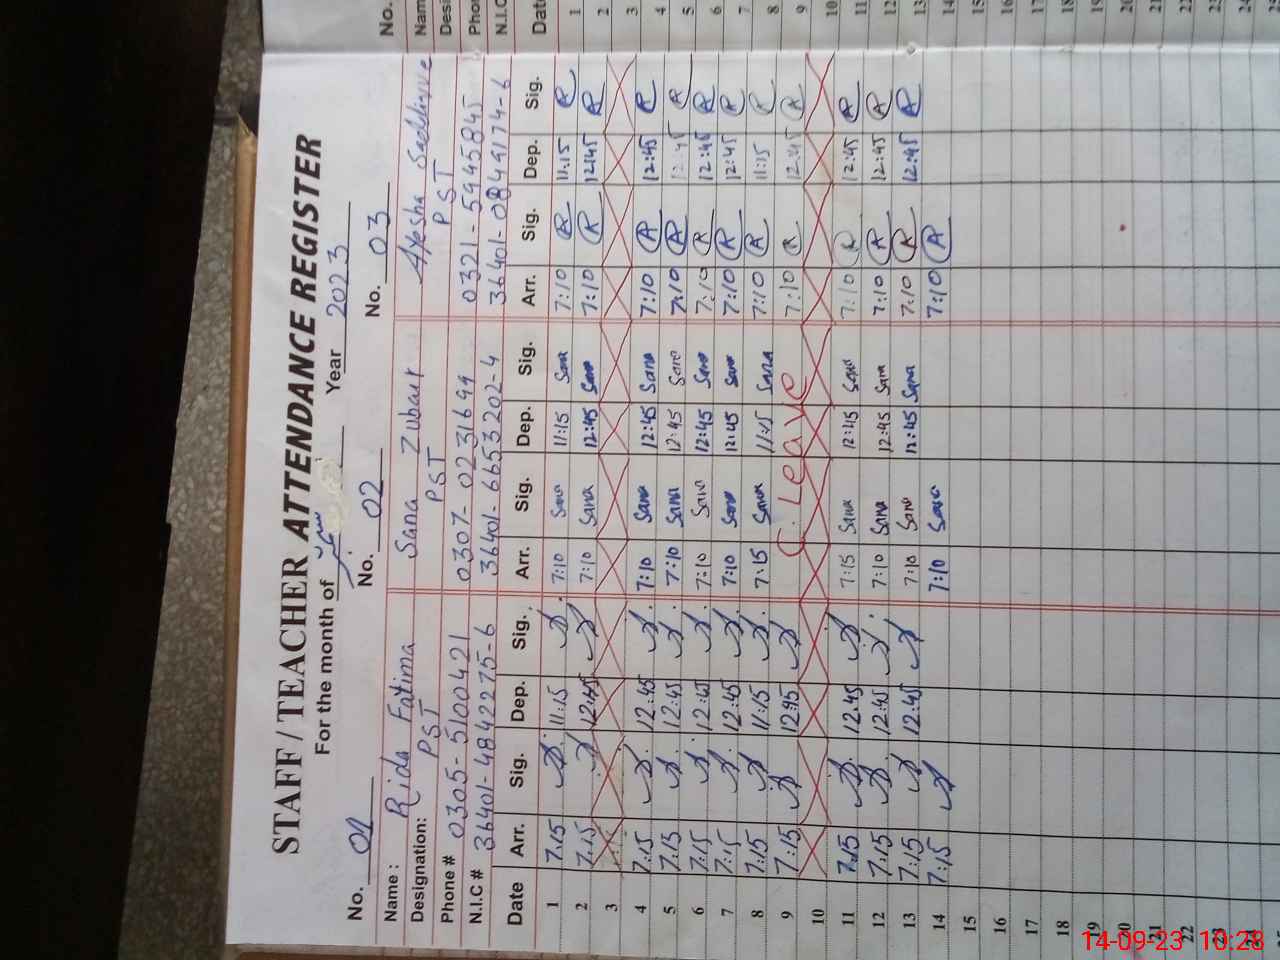 STAFF / TEACHER ATTENDANCE REGISTER
For the month of Year 2023
No. 01 No. 02 No. 03 No.
Name : Rida Fatima Sana Zubair Ayesha
Designation: PST PST PST
Phone # 0305-5100421 0307-0231699 0321-5945845
N.I.C # 36401-4842275-6 36401-6653202-4 36401-0849174-6
Date Arr. Sig. Dep. Sig. Arr. Sig. Dep. Sig. Arr. Sig. Dep. Sig. Date
1 7:15 11:15 7:10 Sana 11:15 Sana 7:10 R 11:15 R 1
2 7:15 12:45 7:10 Sana 12:45 Sana 7:10 R 12:45 R 2
3 3
4 7:15 12:45 7:10 Sana 12:45 Sana 7:10 A 12:45 R 4
5 7:15 12:45 7:10 Sana 12:45 Sana 7:10 A 12:45 R 5
6 7:15 12:45 7:10 Sana 12:45 Sana 7:10 R 12:45 R 6
7 7:15 12:45 7:10 Sana 12:45 Sana 7:10 R 12:45 R 7
8 7:15 11:15 7:15 Sana 11:15 Sana 7:10 R 11:15 R 8
9 7:15 12:45 C. Leave 7:10 R 12:45 R 9
10 10
11 7:15 12:45 7:15 Sana 12:45 Sana 7:10 R 12:45 R 11
12 7:15 12:45 7:10 Sana 12:45 Sana 7:10 R 12:45 A 12
13 7:15 12:45 7:10 Sana 12:45 Sana 7:10 R 12:45 R 13
14 7:15 7:10 Sana 7:10 A 14
15 15
16 16
17 17
18 18
19 19
20 20
21 21
22 22
23 23
24 24
14-09-23 10:28